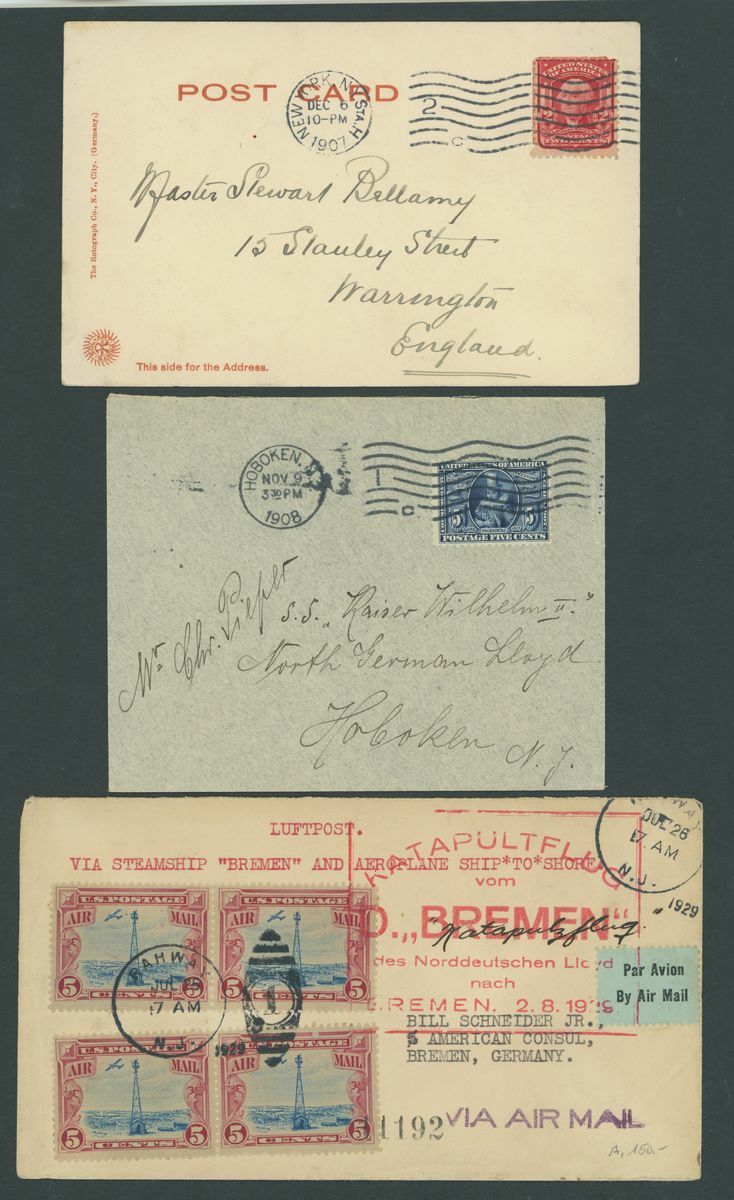 POST CARD
NEW YORK, N.Y. STA. H
DEC 6
10-PM
1907
2
C
UNITED STATES
OF AMERICA
TWO CENTS
The Rotograph Co., N. Y., City. (Germany.)
Master Stewart Bellamy
15 Stanley Street
Warrington
England.
This side for the Address.
HOBOKEN, N.J.
NOV 9
3 30 PM
1908
1
UNITED STATES OF AMERICA
5 5
POCAHONTAS
POSTAGE FIVE CENTS
Mr. Chr. Pieper
S.S. „Kaiser Wilhelm II."
North German Lloyd
Hoboken N. J.
LUFTPOST.
VIA STEAMSHIP "BREMEN" AND AEROPLANE SHIP*TO*SHORE
KATAPULTFLUG
vom
D. „BREMEN"
"Katapultflug.
des Norddeutschen Lloyd
nach
BREMEN. 2.8.1929
JUL 26
17 AM
N.J.
1929
Par Avion
By Air Mail
BILL SCHNEIDER JR.,
% AMERICAN CONSUL,
BREMEN, GERMANY.
U.S. POSTAGE
AIR MAIL
5 CENTS 5
U.S. POSTAGE
AIR MAIL
5 CENTS 5
RAHWAY
JUL 26
17 AM
N.J.
1929
1
U.S. POSTAGE
AIR MAIL
5 CENTS 5
U.S. POSTAGE
AIR MAIL
5 CENTS 5
11192
VIA AIR MAIL
A, 150.-